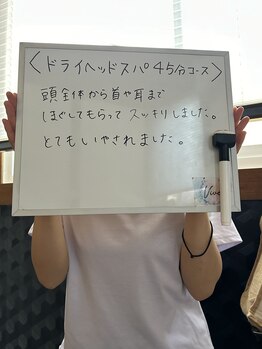 〈ドライヘッドスパ 45分コース〉
頭全体から首や耳まで
ほぐしてもらって スッキリしました。
とてもいやされました。